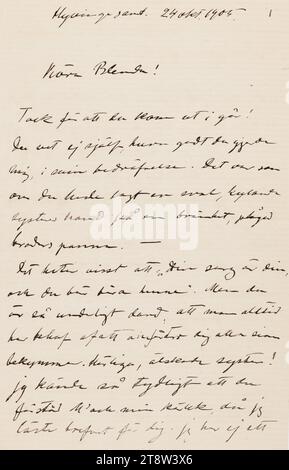 Hyvinge sanat. 24 okt. 1905. 1
Kära Blenda!
Tack för att du kom ut i går!
Du vet ej själf huru godt du gjorde
mig, i min bedröfvelse. Det var som
om du hade lagt en sval, kylande
systerhand på en brännhet, plågad
broders panna. —
Det heter visst att „Din sorg är din,
och du bör bära henne". Men du
är så underligt dand, att man alltid
har behof af att anförtro dig alla sina
bekymmer. Herliga, älskade syster!
Jag kände så tydligt att du
förstod och min när jag
läste brefvet för dig. Jag har ej ett
alamy
Image ID: 2T8W3X6
www.alamy.com